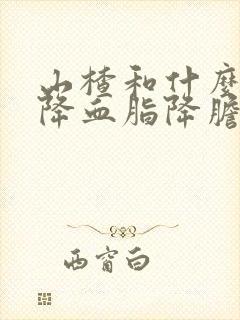 山楂和什麼
降血脂降膽
西窗白